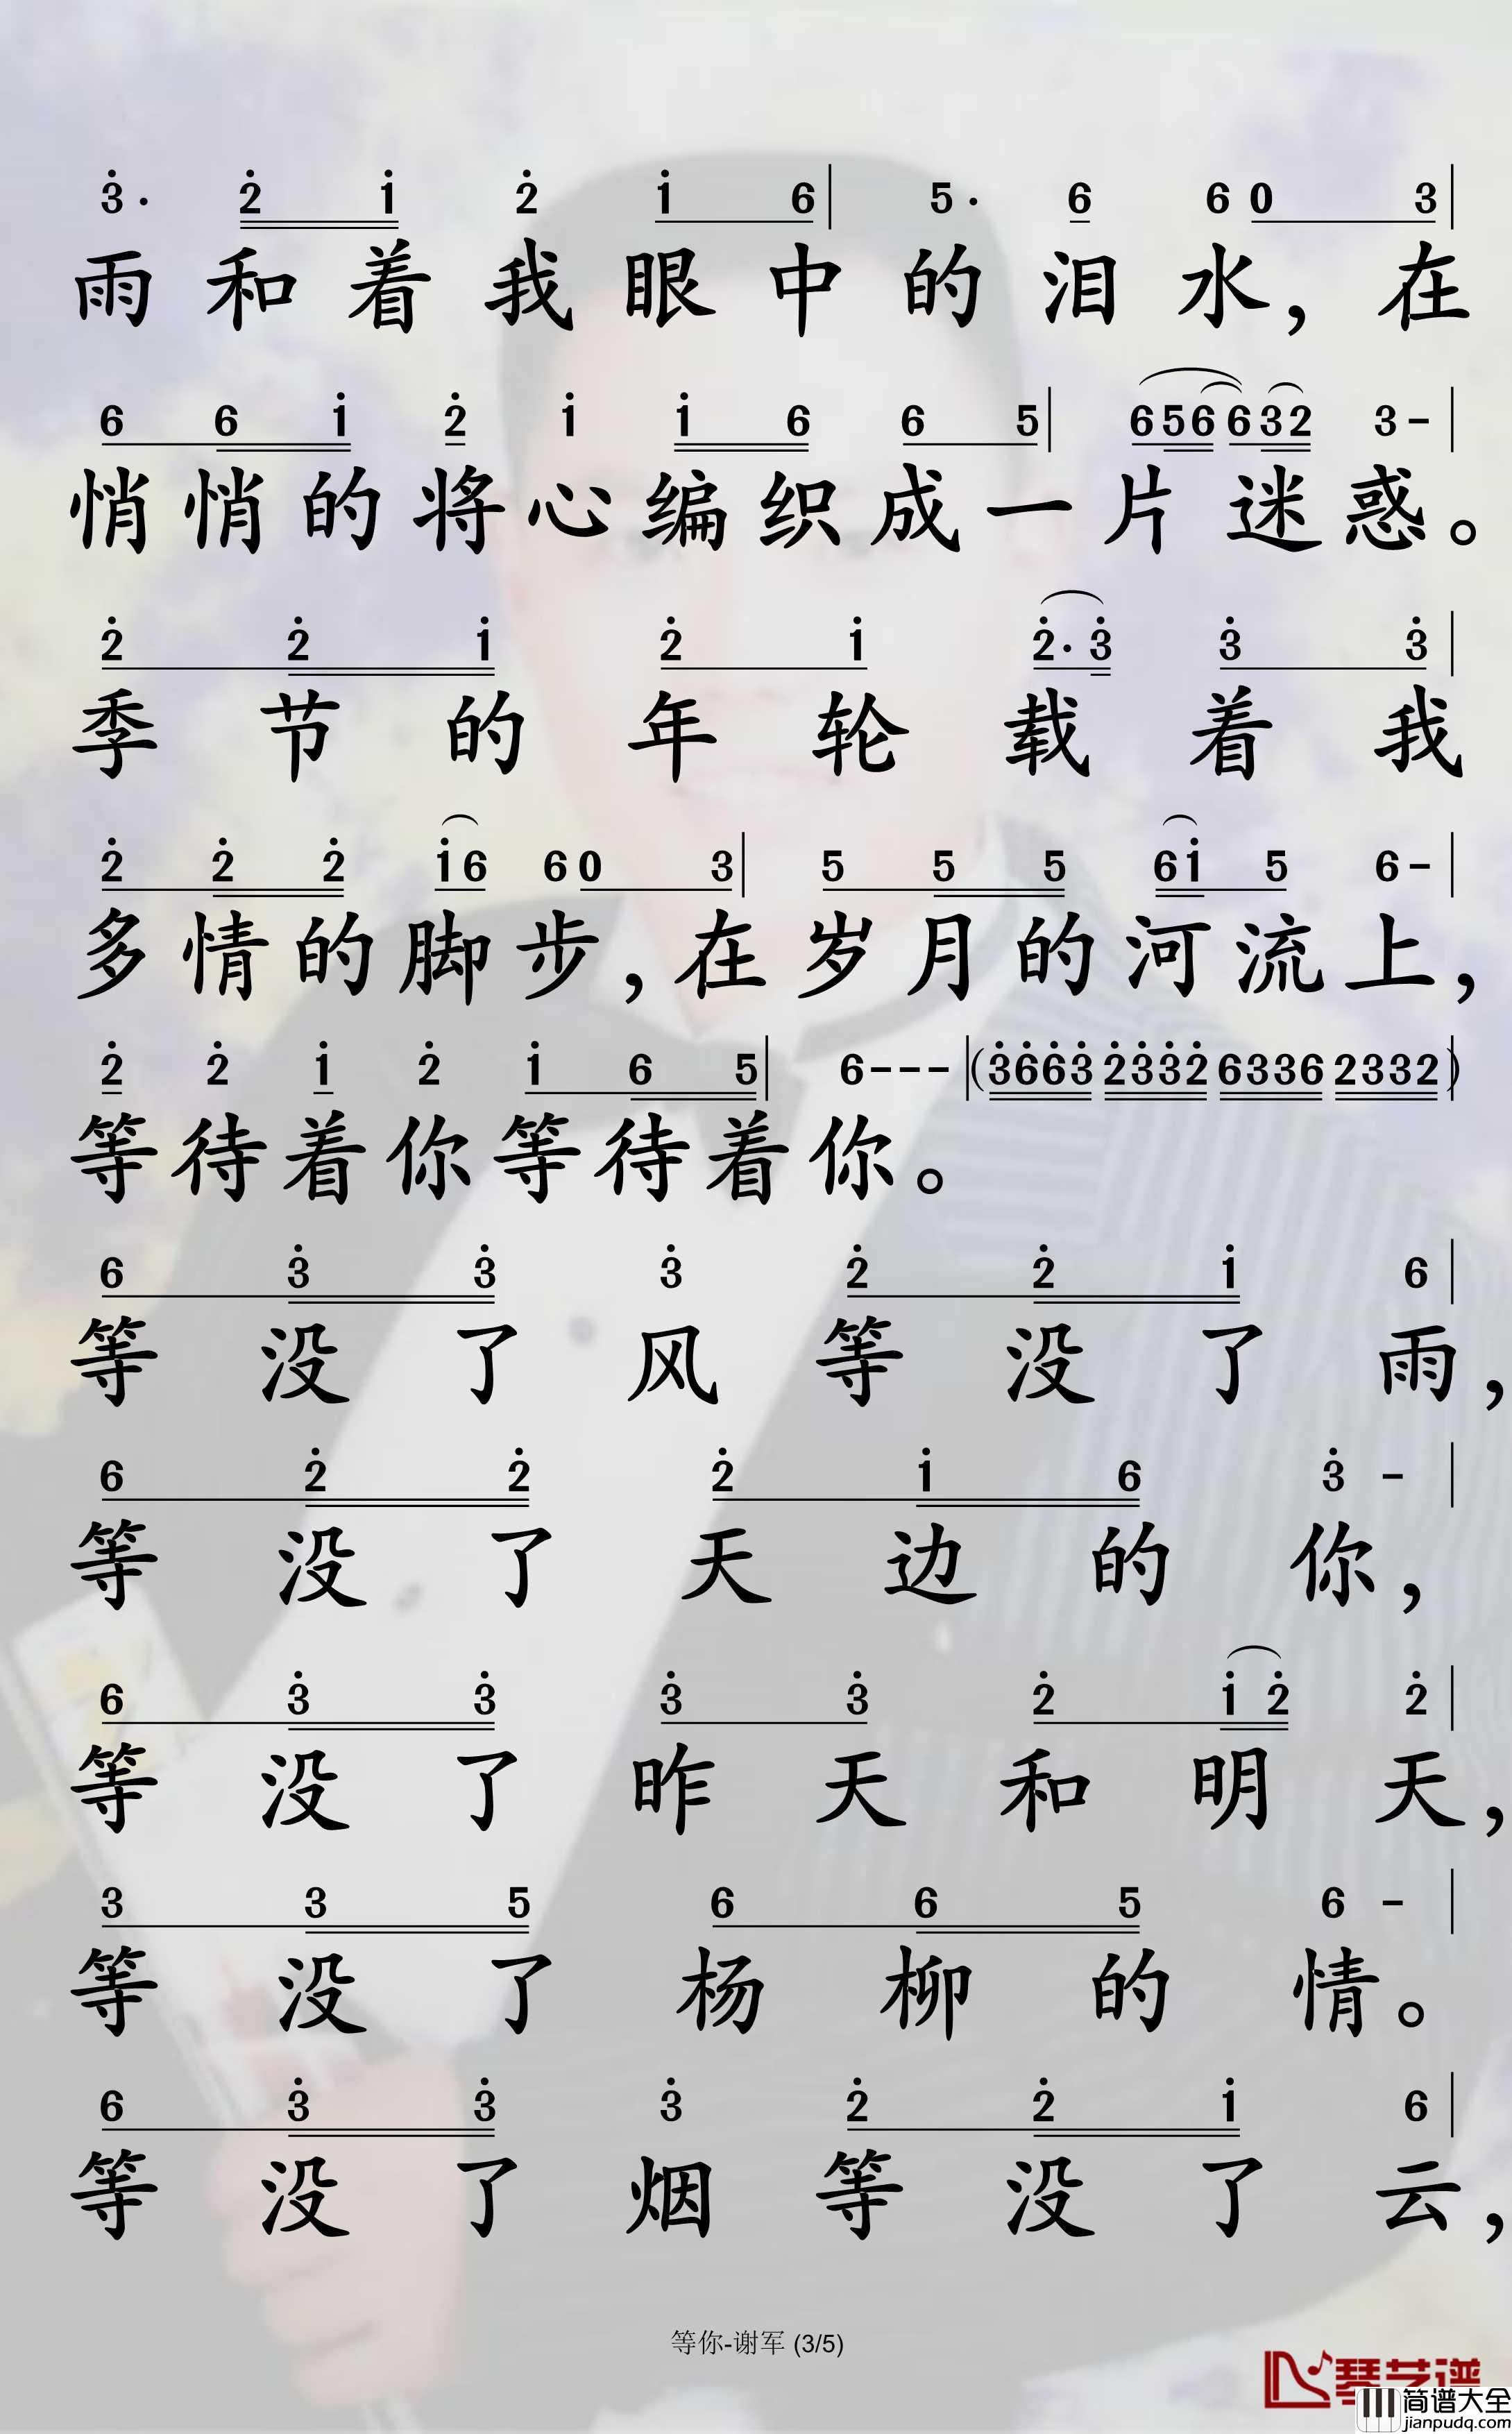 3̇· 2̇ 1̇ 2̇ 1̇ 6 | 5· 6 6 0 3 |
雨和着我眼中的泪水，在
6 6 1̇ 2̇ 1̇ 1̇ 6 6 5 | 6 5 6 6 3 2 3 - |
悄悄的将心编织成一片迷惑。
2̇ 2̇ 1̇ 2̇ 1̇ 2̇· 3̇ 3̇ 3̇ |
季节的年轮载着我
2̇ 2̇ 2̇ 1̇ 6 6 0 3 | 5 5 5 6 1̇ 5 6 - |
多情的脚步，在岁月的河流上，
2̇ 2̇ 1̇ 2̇ 1̇ 6 5 | 6 - - - | (3̇ 6̇ 6̇ 3̇ 2̇ 3̇ 3̇ 2̇ 6 3 3 6 2 3 3 2) |
等待着你等待着你。
6 3̇ 3̇ 3̇ 2̇ 2̇ 1̇ 6 |
等没了风等没了雨，
6 2̇ 2̇ 2̇ 1̇ 6 3̇ - |
等没了天边的你，
6 3̇ 3̇ 3̇ 3̇ 2̇ 1̇ 2̇ 2̇ |
等没了昨天和明天，
3 3 5 6 6 5 6 - |
等没了杨柳的情。
6 3̇ 3̇ 3̇ 2̇ 2̇ 1̇ 6 |
等没了烟等没了云，
等你-谢军 (3/5)
琴艺谱
简谱大全
jianpudq.com